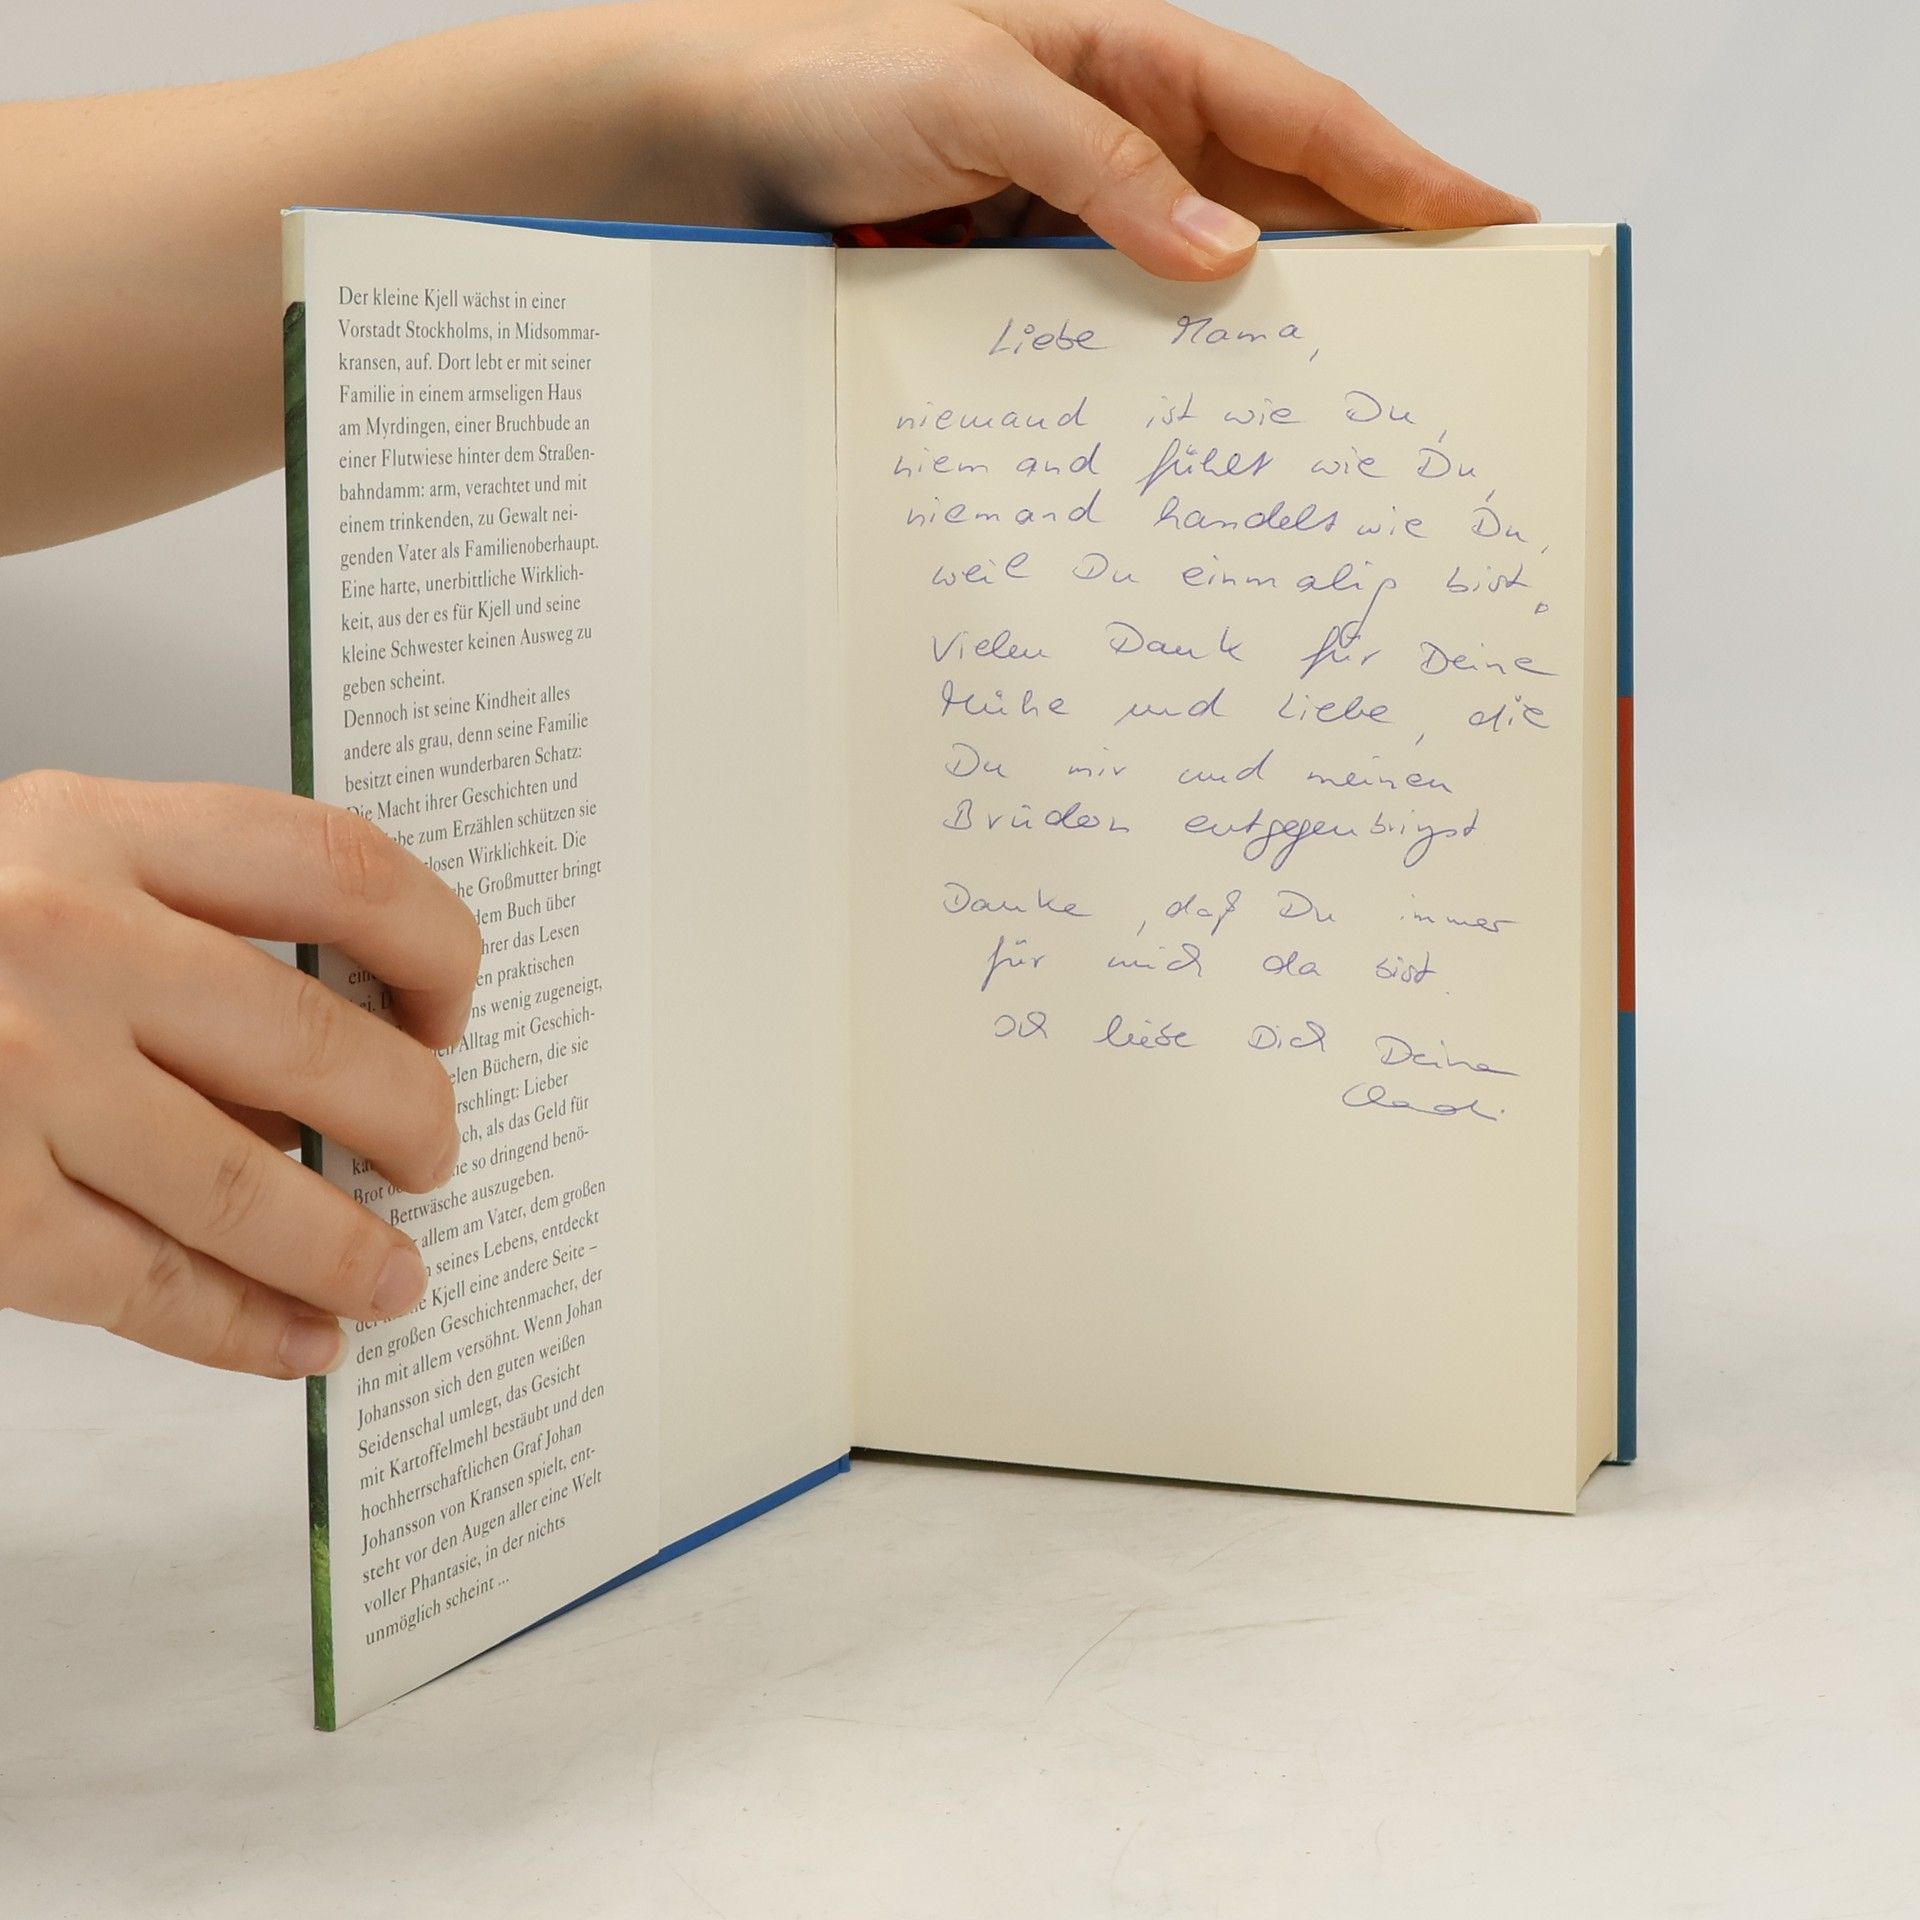 Der kleine Kjell wächst in einer
Vorstadt Stockholms, in Midsommar-
kransen, auf. Dort lebt er mit seiner
Familie in einem armseligen Haus
am Myrdingen, einer Bruchbude an
einer Flutwiese hinter dem Straßen-
bahndamm: arm, verachtet und mit
einem trinkenden, zu Gewalt nei-
genden Vater als Familienoberhaupt.
Eine harte, unerbittliche Wirklich-
keit, aus der es für Kjell und seine
kleine Schwester keinen Ausweg zu
geben scheint.
Dennoch ist seine Kindheit alles
andere als grau, denn seine Familie
besitzt einen wunderbaren Schatz:
Die Macht ihrer Geschichten und
zum Erzählen schützen sie
Wirklichkeit. Die
Großmutter bringt
dem Buch über
das Lesen
praktischen
wenig zugeneigt,
Alltag mit Geschich-
Büchern, die sie
Lieber
als das Geld für
so dringend benö-
Brot
Bettwäsche auszugeben.
allem am Vater, dem großen
seines Lebens, entdeckt
Kjell eine andere Seite –
den großen Geschichtenmacher, der
ihn mit allem versöhnt. Wenn Johan
Johansson sich den guten weißen
Seidenschal umlegt, das Gesicht
mit Kartoffelmehl bestäubt und den
hochherrschaftlichen Graf Johan
Johansson von Kransen spielt, ent-
steht vor den Augen aller eine Welt
voller Phantasie, in der nichts
unmöglich scheint ...
Liebe Mama,
niemand ist wie Du,
niemand fühlt wie Du,
niemand handelt wie Du,
weil Du einmalig bist.
Vielen Dank für Deine
Mühe und Liebe, die
Du mir und meinen
Brüdern entgegenbringst
Danke, daß Du immer
für mich da bist.
Ich liebe Dich Deine